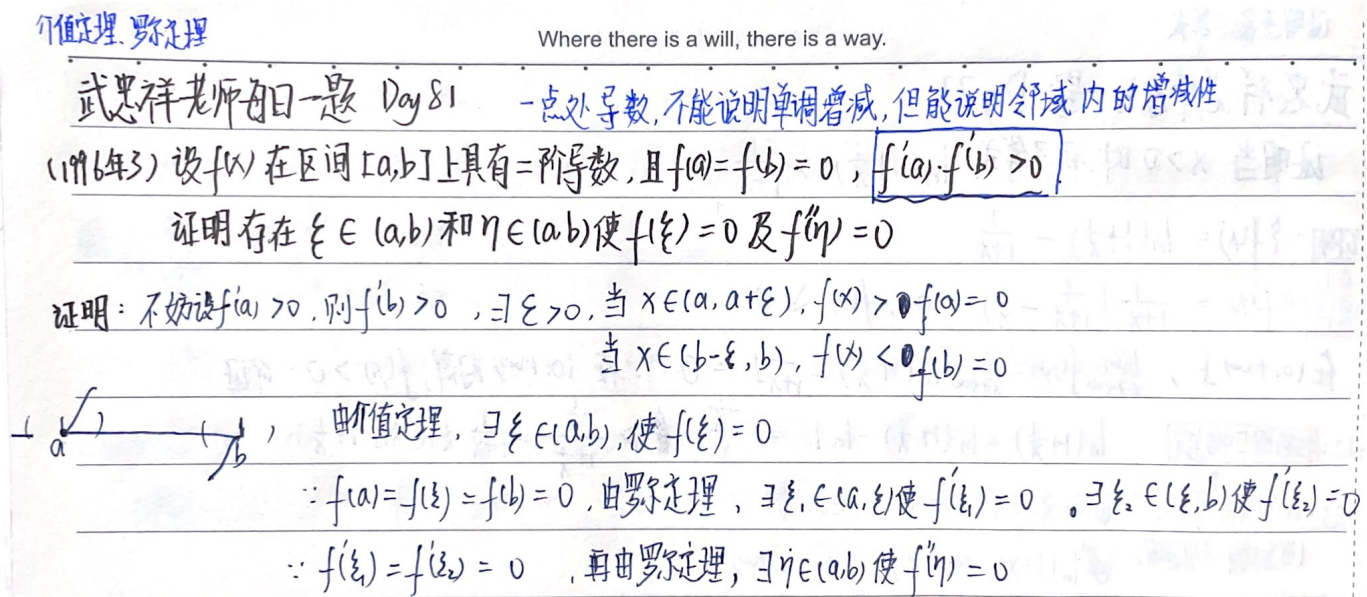 介值定理、罗尔定理
Where there is a will, there is a way.
武忠祥老师每日一题 Day 81 一点处导数,不能说明单调增减,但能说明邻域内的增减性
(1996年3) 设f(x) 在区间[a,b]上具有二阶导数,且f(a)=f(b)=0, f'(a)·f'(b)>0.
证明存在ξ∈(a,b)和η∈(a,b)使f(ξ)=0及f''(η)=0
证明:不妨设f'(a)>0,则f'(b)>0,∃ε>0,当x∈(a,a+ε),f(x)>f(a)=0
当x∈(b-ε,b),f(x)<f(b)=0
a b 由介值定理,∃ξ∈(a,b),使f(ξ)=0
∵f(a)=f(ξ)=f(b)=0,由罗尔定理,∃ξ₁∈(a,ξ)使f'(ξ₁)=0。∃ξ₂∈(ξ,b)使f'(ξ₂)=0
∵f'(ξ₁)=f'(ξ₂)=0,再由罗尔定理,∃η∈(a,b)使f''(η)=0